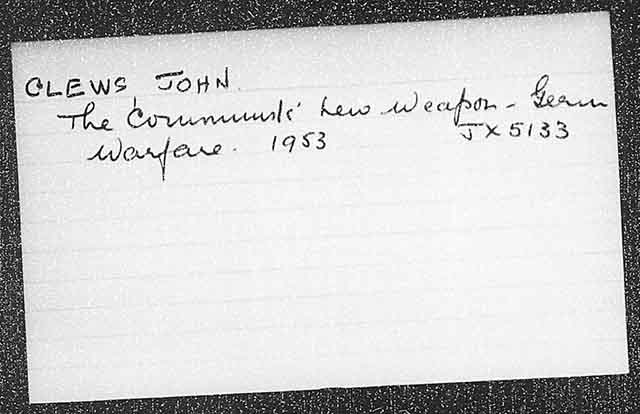 CLEWS, JOHN.
The Communists' new weapon - Germ
Warfare. 1953 JX5133